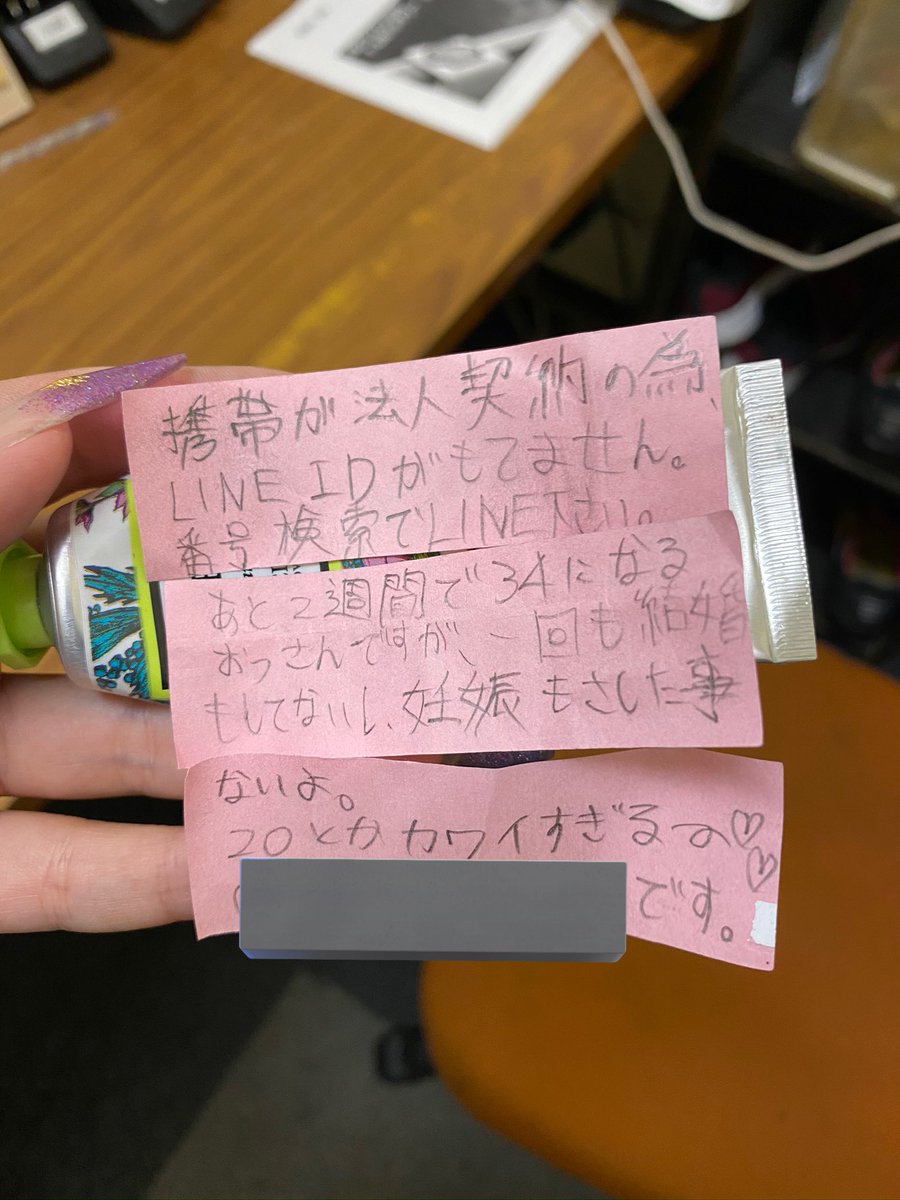 携帯が法人契約の為、
LINE IDがもてません。
番号検索でLINE下さい。
あと2週間で34になる
おっさんですが、一回も結婚
もしてないし、妊娠もさした事
ないよ。
20とかカワイすぎるの♡♡
です。